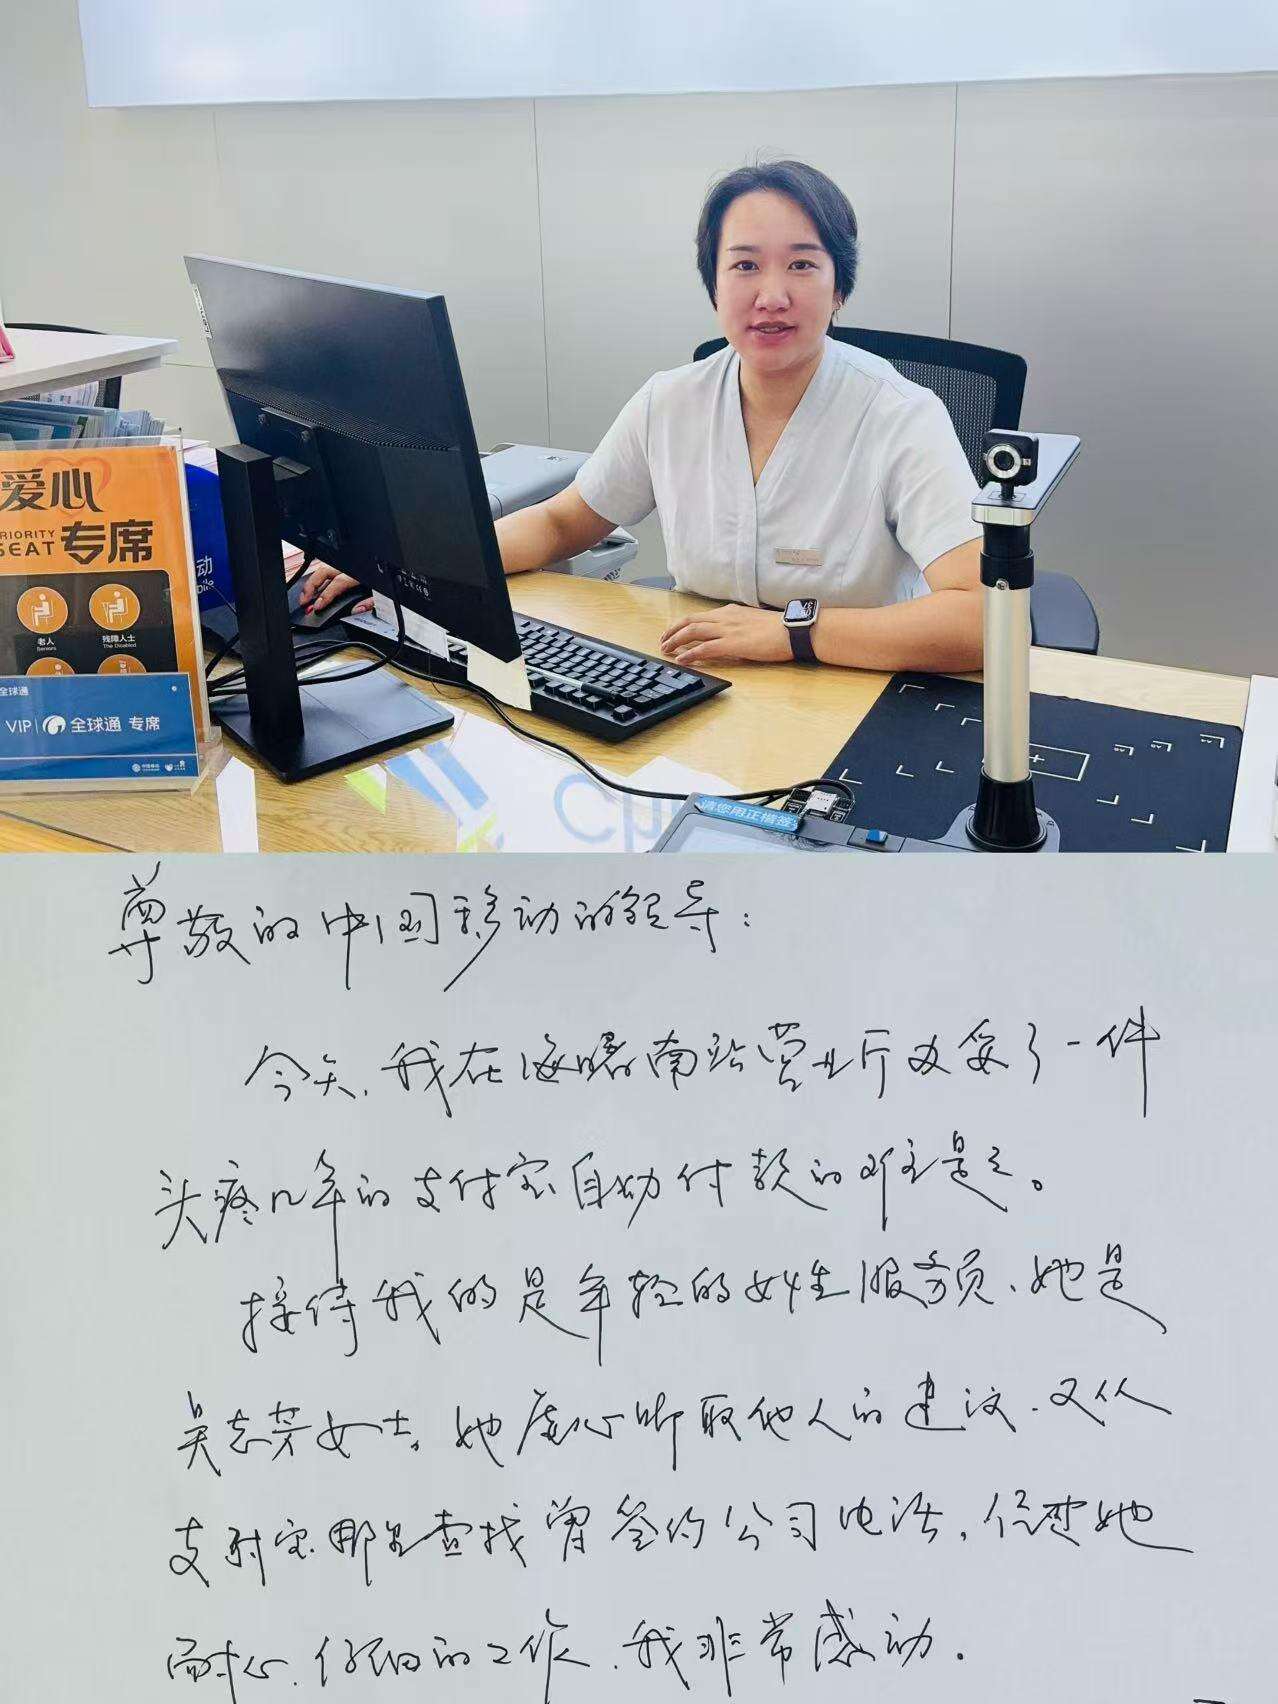 爱心
PRIORITY
SEAT 专席
老人
Seniors
残障人士
The Disabled
全球通
VIP 全球通 专席
中国移动
动
请您用正楷签
尊敬的中国移动的领导：
今天，我在海曙南站营业厅办妥了一件
头疼几年的支付宝自动付款的难题。
接待我的是年轻的女性服务员、她是
吴志芳女士。她虚心听取他人的建议、又从
支付宝那里查找曾签约公司电话，凭她
耐心、仔细的工作、我非常感动。